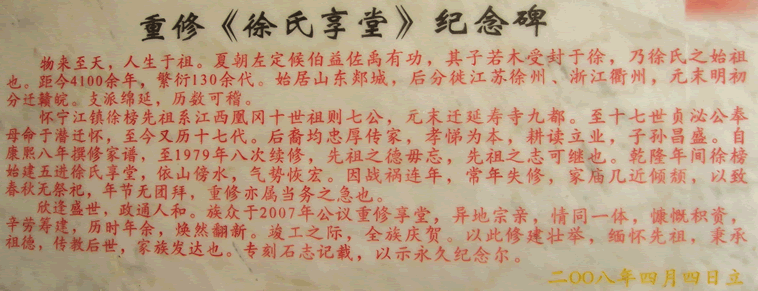 重修《徐氏享堂》纪念碑
物来至天，人生于祖。夏朝左定候伯益佐禹有功，其子若木受封于徐，乃徐氏之始祖
也。距今4100余年，繁衍130余代。始居山东郯城，后分徙江苏徐州、浙江衢州，元末明初
分迁赣皖。支派绵延，历数可稽。
怀宁江镇徐榜先祖系江西凰冈十世祖则七公，元末迁延寿寺九都。至十七世贞泌公奉
母命于潜迁怀，至今又历十七代。后裔均忠厚传家，孝悌为本，耕读立业，子孙昌盛。自
康熙八年撰修家谱，至1979年八次续修，先祖之德毋忘，先祖之志可继也。乾隆年间徐榜
始建五进徐氏享堂，依山傍水，气势恢宏。因战祸连年，常年失修，家庙几近倾颓，以致
春秋无祭祀，年节无团拜，重修亦属当务之急也。
欣逢盛世，政通人和。族众于2007年公议重修享堂，异地宗亲，情同一体，慷慨积资，
辛劳筹建，历时年余，焕然翻新。竣工之际，全族庆贺。以此修建壮举，缅怀先祖，秉承
祖德，传教后世，家族发达也。专刻石志记载，以示永久纪念尔。
二OO八年四月四日立